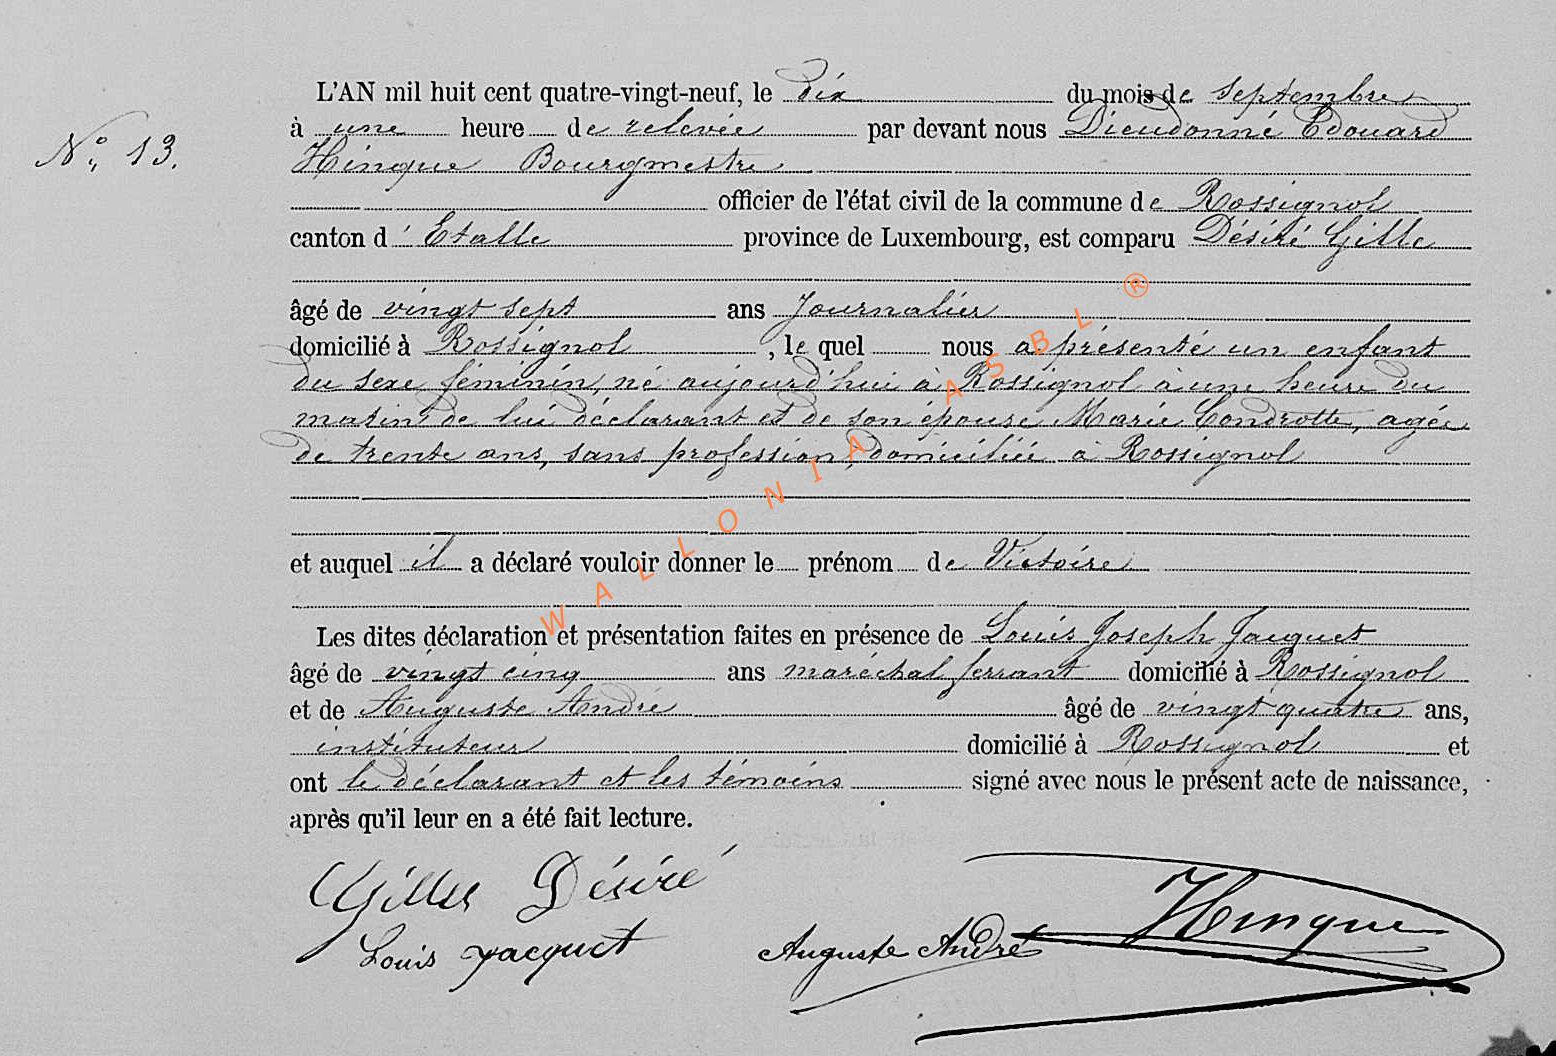 L'AN mil huit cent quatre-vingt-neuf, le dix du mois de septembre
à une heure de relevée par devant nous Dieudonné Edouard
N°. 13.
Hinque Bourgmestre
officier de l'état civil de la commune de Rossignol
canton d' Etalle province de Luxembourg, est comparu Désiré Gille
âgé de vingt sept ans Journalier
domicilié à Rossignol, le quel nous a présenté un enfant
du sexe féminin, né aujourd'hui à Rossignol à une heure du
matin de lui déclarant et de son épouse Marie Condrotte, agée
de trente ans, sans profession, domiciliée à Rossignol
et auquel il a déclaré vouloir donner le prénom de Victoire
Les dites déclaration et présentation faites en présence de Louis Joseph Jacquet
âgé de vingt cinq ans maréchal ferrant domicilié à Rossignol
et de Auguste André âgé de vingt quatre ans,
instituteur domicilié à Rossignol et
ont le déclarant et les témoins signé avec nous le présent acte de naissance,
après qu'il leur en a été fait lecture.
Gilles Désiré
Hinque
Louis Jacquet
Auguste André
WALLONIA ASBL ®